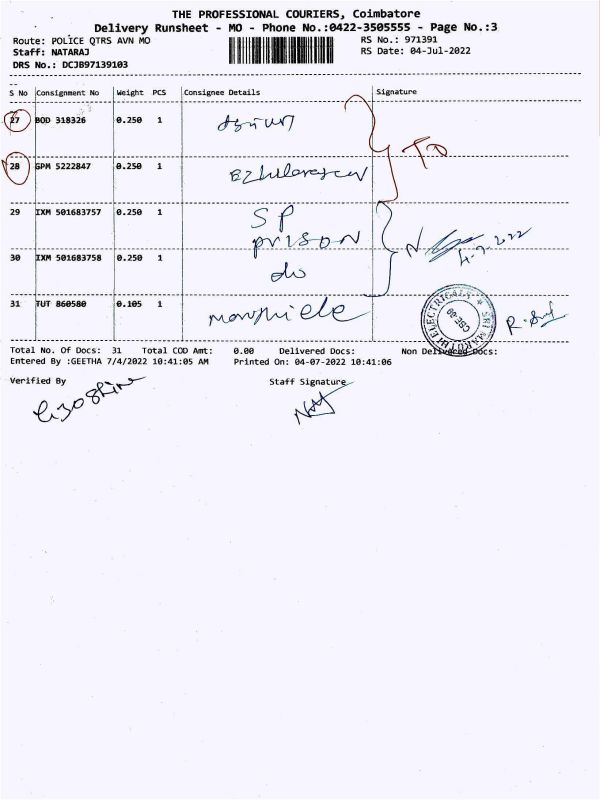 THE PROFESSIONAL COURIERS, Coimbatore
Delivery Runsheet - MO - Phone No.:0422-3505555 - Page No.:3
Route: POLICE QTRS AVN MO
RS No.: 971391
Staff: NATARAJ
RS Date: 04-Jul-2022
DRS No.: DCJB97139103
S No Consignment No Weight PCS Consignee Details Signature
27 BOD 318326 0.250 1
28 GPM 5222847 0.250 1
TD
29 IXM 501683757 0.250 1 SP
prison
N
4-7-2022
30 IXM 501683758 0.250 1 do
31 TUT 860580 0.105 1
SRI MARUTHI ELECTRICALS
CBE
Total No. Of Docs: 31 Total COD Amt: 0.00 Delivered Docs: Non Delivered Docs:
Entered By :GEETHA 7/4/2022 10:41:05 AM Printed On: 04-07-2022 10:41:06
Verified By Staff Signature